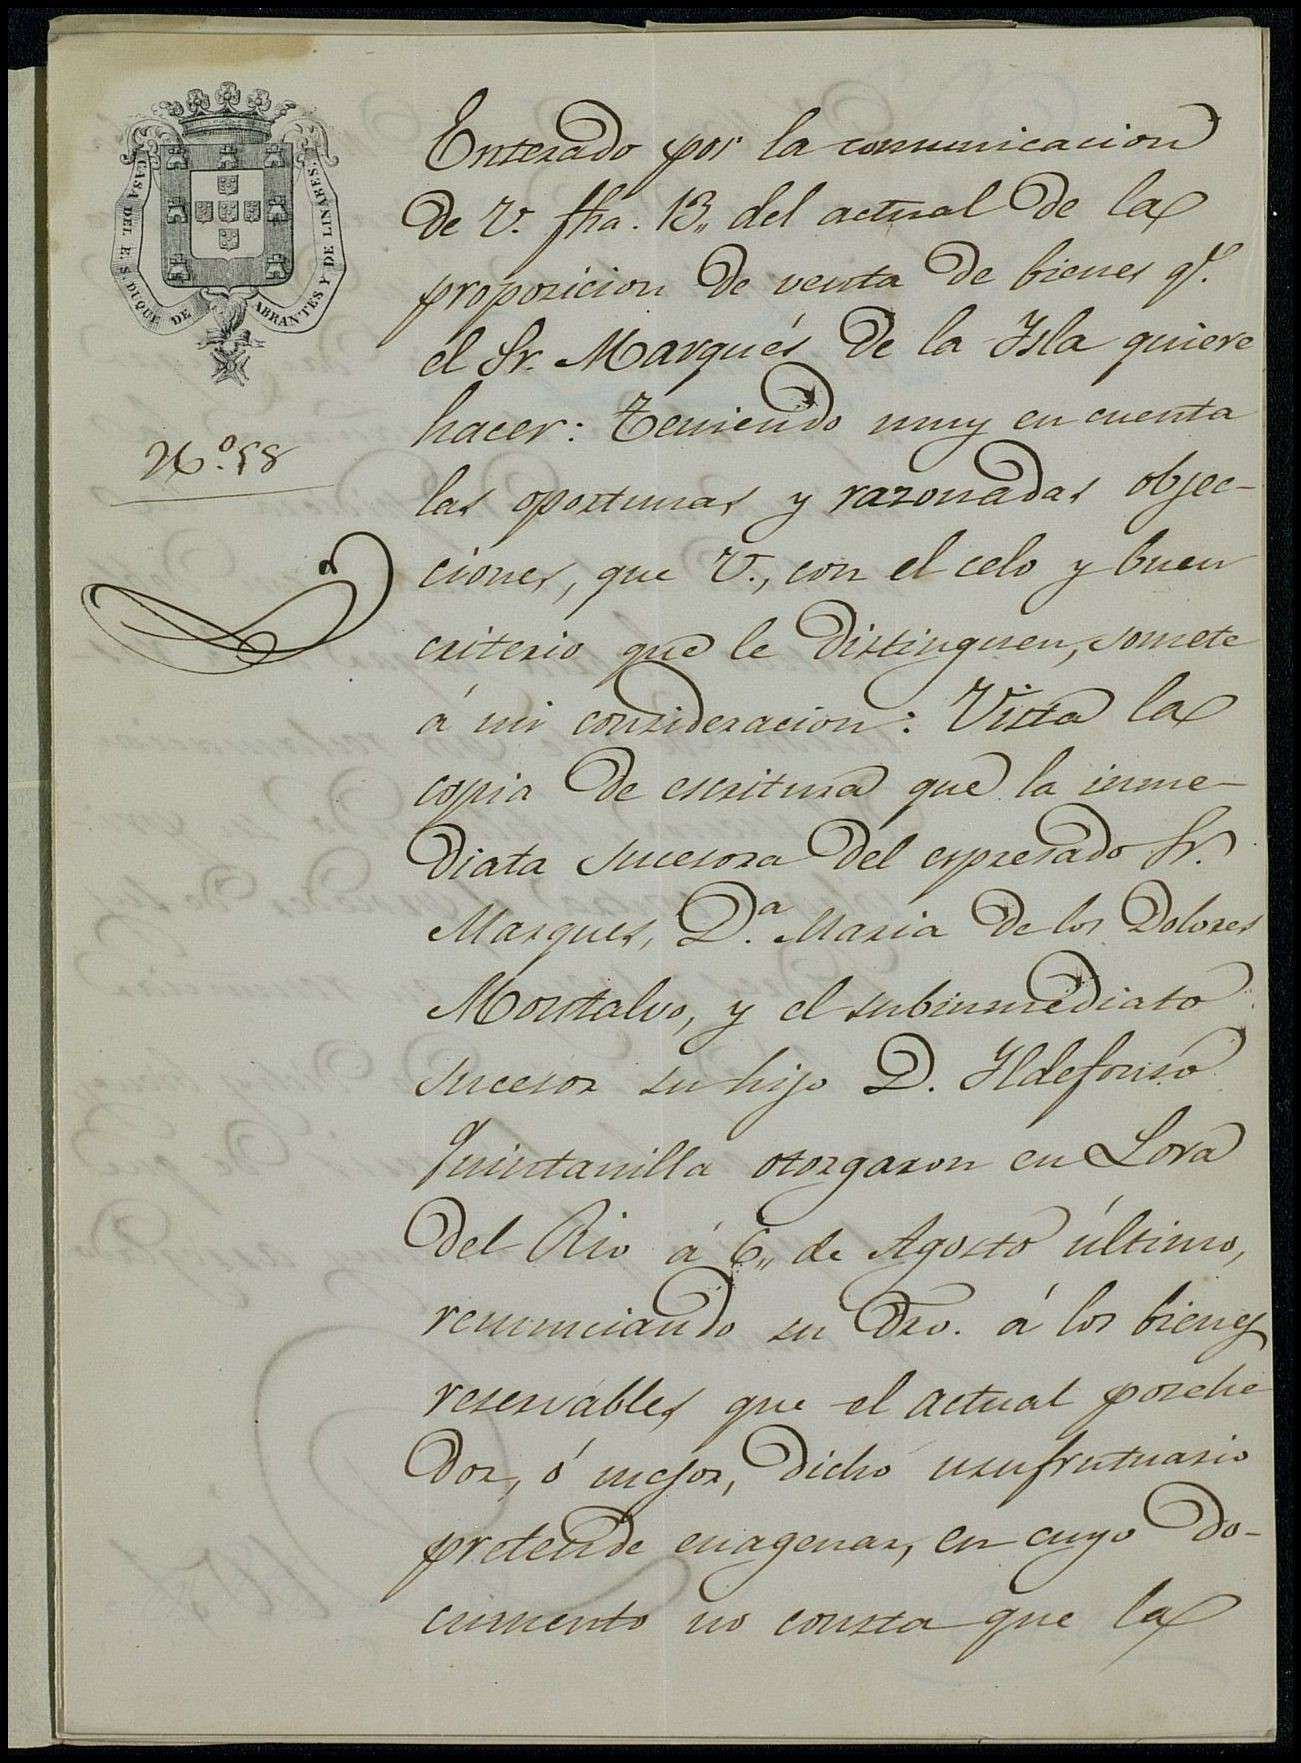 CASA DEL E. S. DUQUE DE ABRANTES Y DE LINARES.
N.º 58
Enterado por la comunicacion
de V. fha. 13,, del actual de la
proposicion de venta de bienes q.e
el Sr. Marqués de la Isla quiere
hacer: Teniendo muy en cuenta
las oportunas y razonadas objec-
ciones, que V., con el celo y buen
criterio que le distinguen, somete
á mi consideracion: Vista la
copia de escritura que la inme-
diata sucesora del espresado Sr.
Marques, D.a Maria de los Dolores
Montalvo, y el subinmediato
sucesor su hijo D. Ildefonso
Quintanilla otorgaron en Lora
del Rio á 6,, de Agosto último,
renunciando su Dro. á los bienes
reservables que el actual poséhe
dor, ó mejor, dicho usufrutuario
pretende enagenar, en cuyo do-
cumento no consta que la